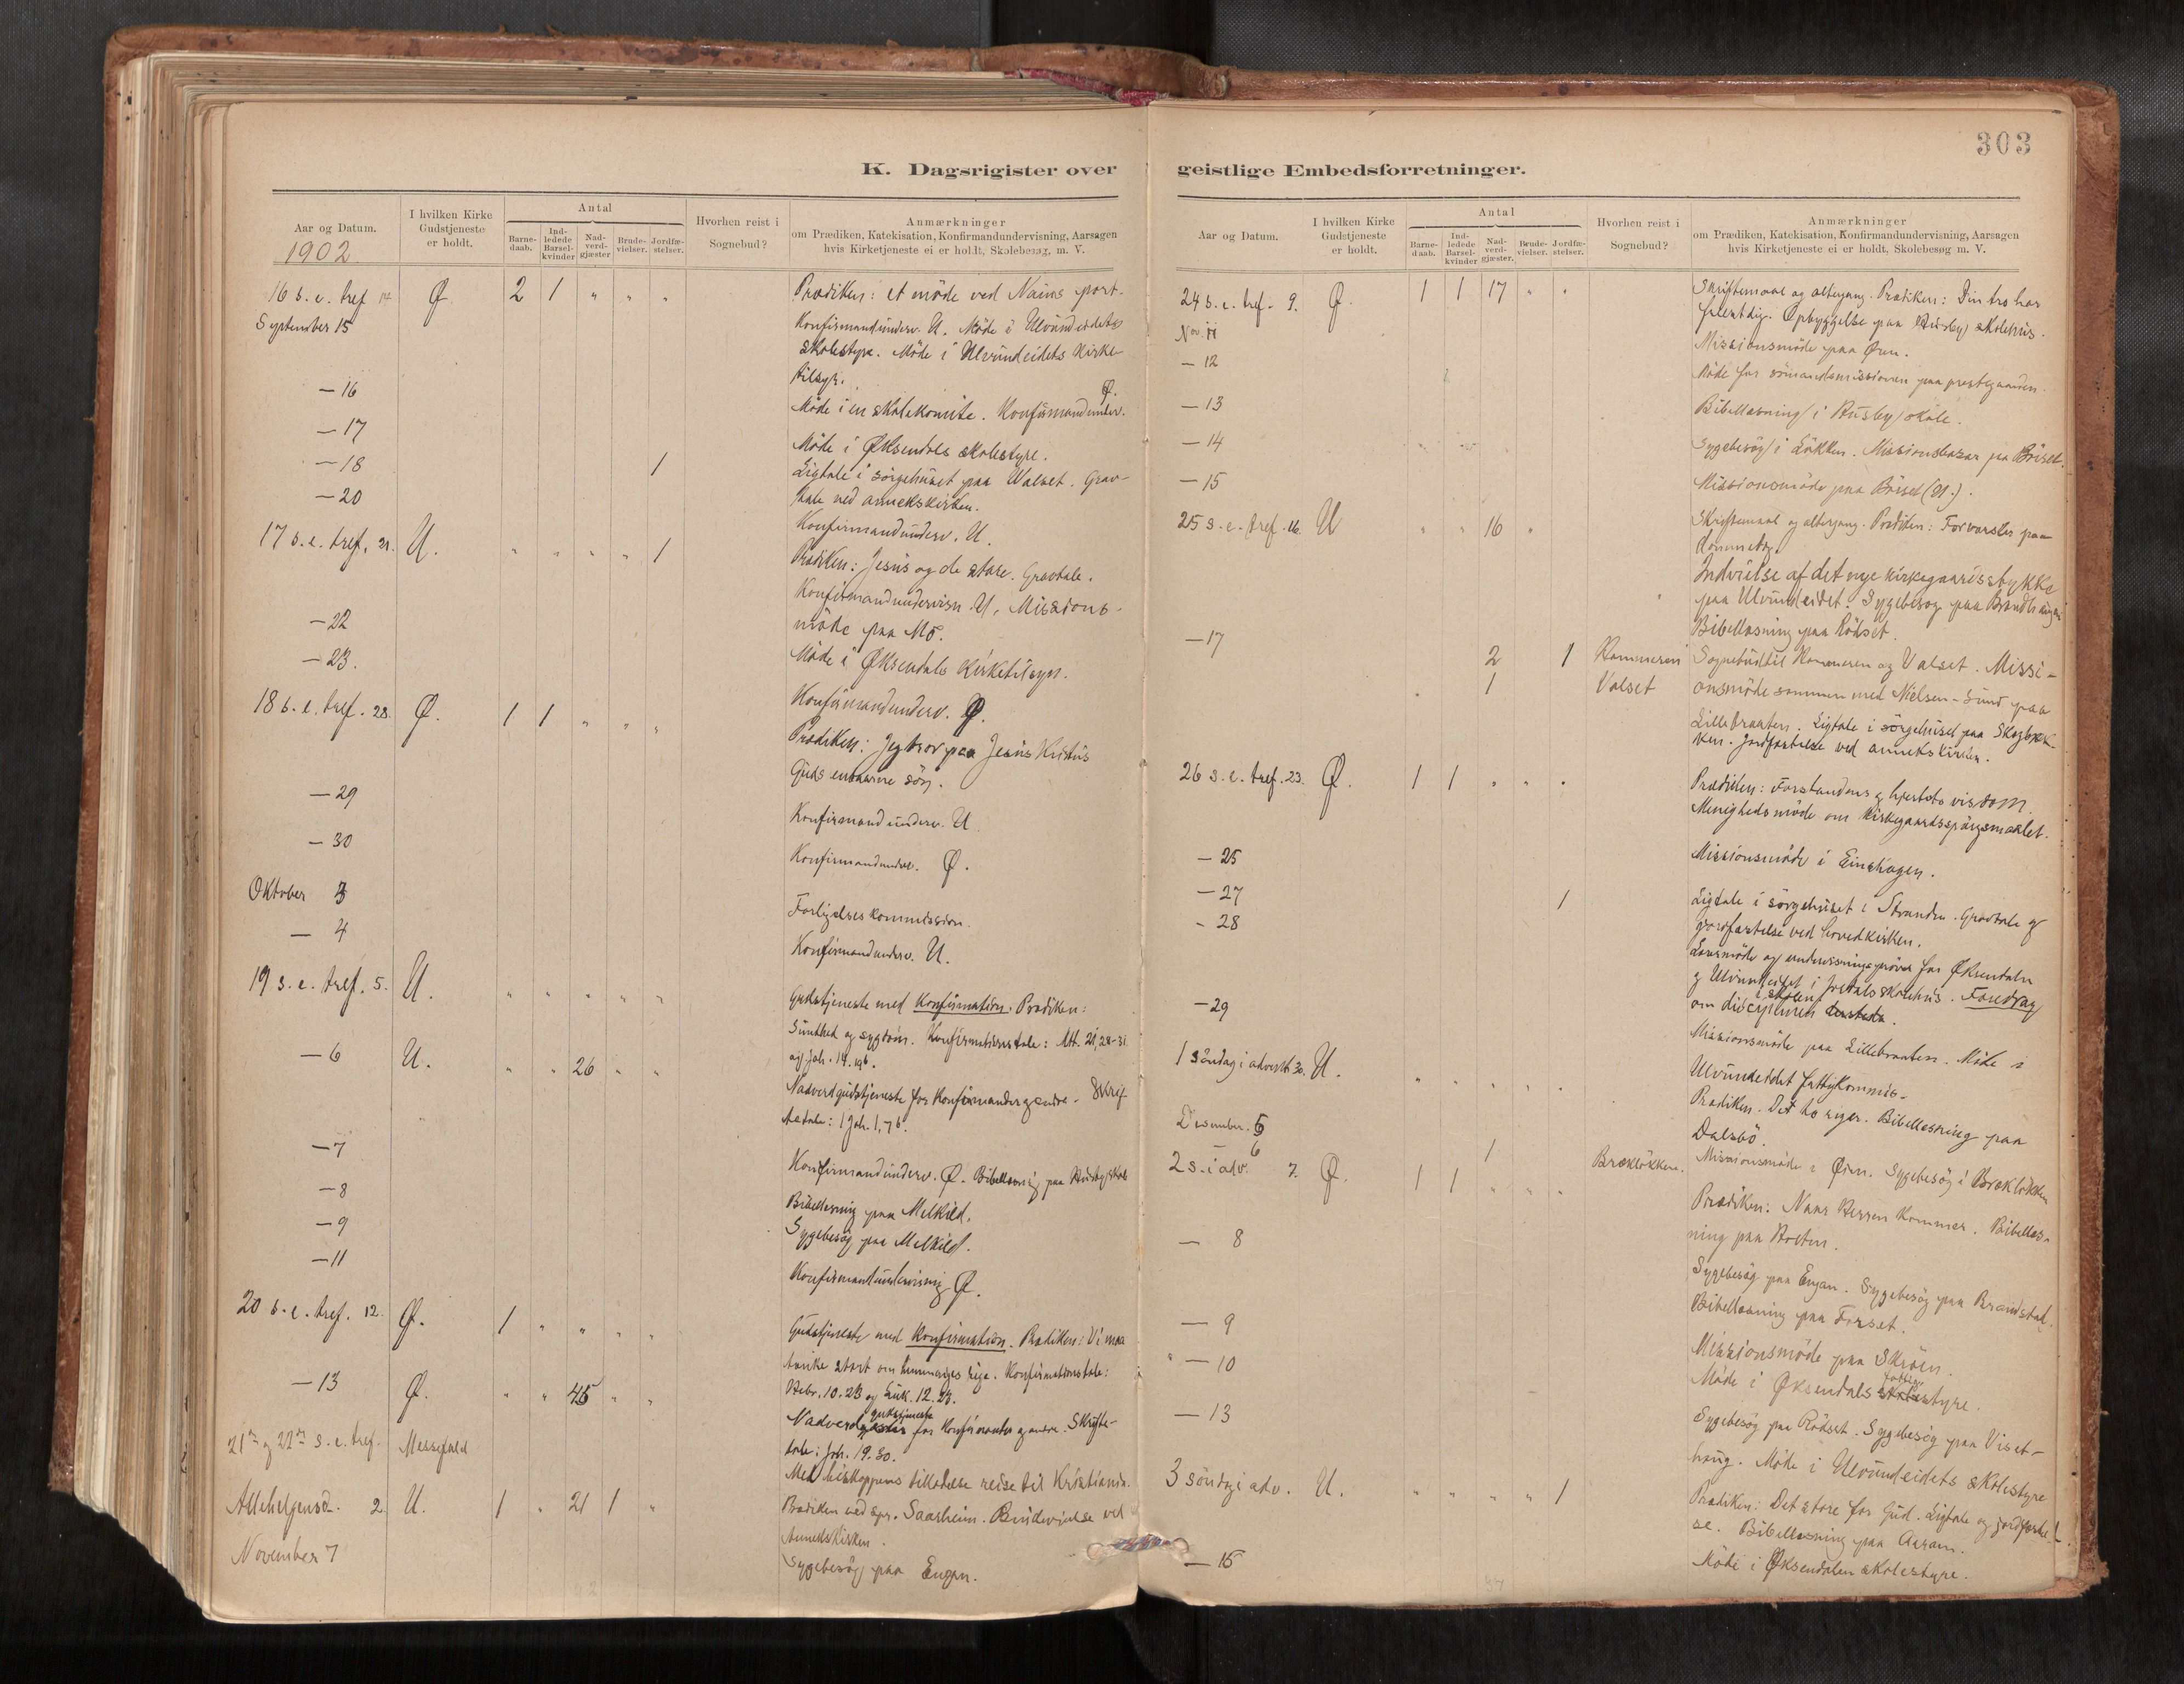 303
K. Dagsrigister over geistlige Embedsforretninger.
Aar og Datum.
I hvilken Kirke Gudstjeneste er holdt.
Antal
Barne-daab.
Ind-ledede Barsel-kvinder
Nad-verd-gjæster
Brude-vielser.
Jordfæ-stelser.
Hvorhen reist i Sognebud?
Anmærkninger
om Prædiken, Katekisation, Konfirmandundervisning, Aarsagen
hvis Kirketjeneste ei er holdt, Skolebesøg, m. V.
1902
16 s. e. tref. 14 Ø. 2 1 " " " Prædiken: et möde ved Nains port.
September 15 Konfirmandunderv. U. Möde i Ulvundeidets
skolestyre. Möde i Ulvundeidets kirke-
tilsyn.
— 16 Möde i en skolekomite. Konfirmandunderv. Ø.
— 17 Möde i Øksendals skolestyre.
— 18 1 Ligtale i sörgehuset paa Valset. Grav-
tale ved annekskirken.
— 20 Konfirmandunderv. U.
17 s. e. tref. 21. U. " " " " 1 Prædiken: Jesus og de store. Gravtale.
Konfirmandundervisn. U. Missions-
möde paa Mo.
— 22
— 23. Möde i Øksendals kirketilsyn.
Konfirmandunderv. Ø.
18 s. e. tref. 28. Ø. 1 1 " " " Prædiken: Jeg tror paa Jesus Kristus
Guds enbaarne sön.
— 29 Konfirmandunderv. U
— 30 Konfirmandunderv. Ø.
Oktober 3 Forligelseskommission.
— 4 Konfirmandunderv. U.
19 s. e. tref. 5. U. " " " " " Gudstjeneste med Konfirmation. Prædiken:
Sundhed og sygdom. Konfirmationstale: Mt. 21, 28-31
og Joh. 14. 19b.
— 6 U. " " 26 " " Nadverdgudstjeneste for konfirmander og andre. Skrif-
tetale: 1 Joh. 1, 7b.
— 7 Konfirmandunderv. Ø. Bibellæsning paa Husby skole
— 8 Bibellæsning paa Melkild.
— 9 Sygebesög paa Melkild.
— 11 Konfirmandundervisning Ø.
20 s. e. tref. 12. Ø. 1 " " " " Gudstjeneste med Konfirmation. Prædiken: Vi maa
tænke stort om himmeriges rige. Konfirmationstale:
Hebr. 10. 23 og Luk. 12. 23.
— 13 Ø. " " 45 " " Nadverdgudstjeneste for konfirmander og andre. Skrifte-
tale: Joh. 19. 30.
21de og 22de s. e. tref. Messefald Med biskoppens tilladelse reise til Kristiania.
Allehelgensd. 2. U. 1 " 21 1 " Prædiken ved spr. Saarheim. Brudevielse ved
Annekskirken.
November 7 Sygebesög paa Engan.
Aar og Datum.
I hvilken Kirke Gudstjeneste er holdt.
Antal
Barne-daab.
Ind-ledede Barsel-kvinder
Nad-verd-gjæster.
Brude-vielser.
Jordfæ-stelser.
Hvorhen reist i Sognebud?
Anmærkninger
om Prædiken, Katekisation, Konfirmandundervisning, Aarsagen
hvis Kirketjeneste ei er holdt, Skolebesøg m. V.
24 s. e. tref. 9. Ø. 1 1 17 " " Skriftemaal og altergang. Prædiken: Din tro har
frelst dig. Opbyggelse paa Husby skolehus.
Nov. 11 Missionsmöde paa Øren.
— 12 Möde for sömandsmissionen paa prestegaarden.
— 13 Bibellæsning i Husby skole.
— 14 Sygebesög i Lökken. Missionsbasar paa Böiset.
— 15 Missionsmöde paa Böiset (U.).
25 s. e. tref. 16. U " " 16 " Skriftemaal og altergang. Prædiken: Forvarsler paa
dommedag.
Indvielse af det nye kirkegaardsstykke
paa Ulvundeidet. Sygebesög paa Brandhaugen
Bibellæsning paa Rödset.
— 17 2 1 Hammeren Sognebud til Hammeren og Valset. Missi-
1 Valset onsmöde sammen med Nielsen-Sund paa
Lillebraaten. Ligtale i sörgehuset paa Skogbæk-
ken. Jordfæstelse ved annekskirken.
26 s. e. tref. 23. Ø. 1 1 " " " Prædiken: Forstandens og hjertets visdom.
Menighedsmöde om kirkegaardsspörgsmaalet.
— 25 Missionsmöde i Einshagen.
— 27 1 Ligtale i sörgehuset i Stranden. Gravtale og
jordfæstelse ved hovedkirken.
— 28 Lærermöde og undervisningspröver for Øksendalen
og Ulvundeidet i Jordals skolehus. Foredrag
om disciplinen i skolen.
— 29 Missionsmöde paa Lillebraaten. Möde i
Ulvundeidet fattigkommis-
1 söndag i advent 30. U. " " " " " Prædiken. Det to riger. Bibellæsning paa
Dalsbö.
Desember. 5 Missionsmöde i Øren. Sygebesög i Brækløkken
6 1 Brækløkken.
2 s. i adv. 7. Ø. 1 1 " " " Prædiken: Naar Herren kommer. Bibellæs-
ning paa Hoelsn.
— 8 Sygebesög paa Engan. Sygebesög paa Brandstad.
Bibellæsning paa Forset.
— 9 Missionsmöde paa Skröen.
" — 10 Möde i Øksendals fattigstyre.
— 13 Sygebesög paa Rödset. Sygebesög paa Viset-
haug. Möde i Ulvundeidets skolestyre
3 söndag i adv. U. " " " " 1 Prædiken: Det store for Gud. Ligtale og jordfæstel-
se. Bibellæsning paa Aaram.
— 15 Möde i Øksendalen skolestyre.